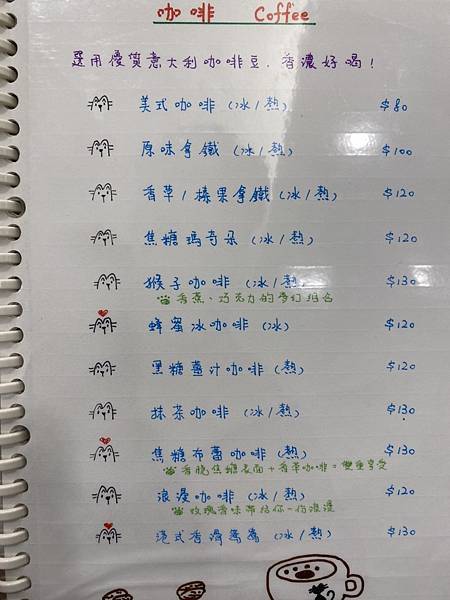 咖啡 Coffee
選用優質意大利咖啡豆,香濃好喝!
美式咖啡(冰/熱) $80
原味拿鐵(冰/熱) $100
香草/榛果拿鐵(冰/熱) $120
焦糖瑪奇朵(冰/熱) $120
猴子咖啡(冰/熱) $130
香蕉、巧克力的夢幻組合
蜂蜜冰咖啡(冰) $120
黑糖薑汁咖啡(熱) $120
抹茶咖啡(冰/熱) $130
焦糖布蕾咖啡(熱) $130
香脆焦糖表面+香草咖啡=雙重享受
浪漫咖啡(冰/熱) $120
玫瑰香味帶給你一份浪漫
港式香滑鴛鴦(冰/熱) $130